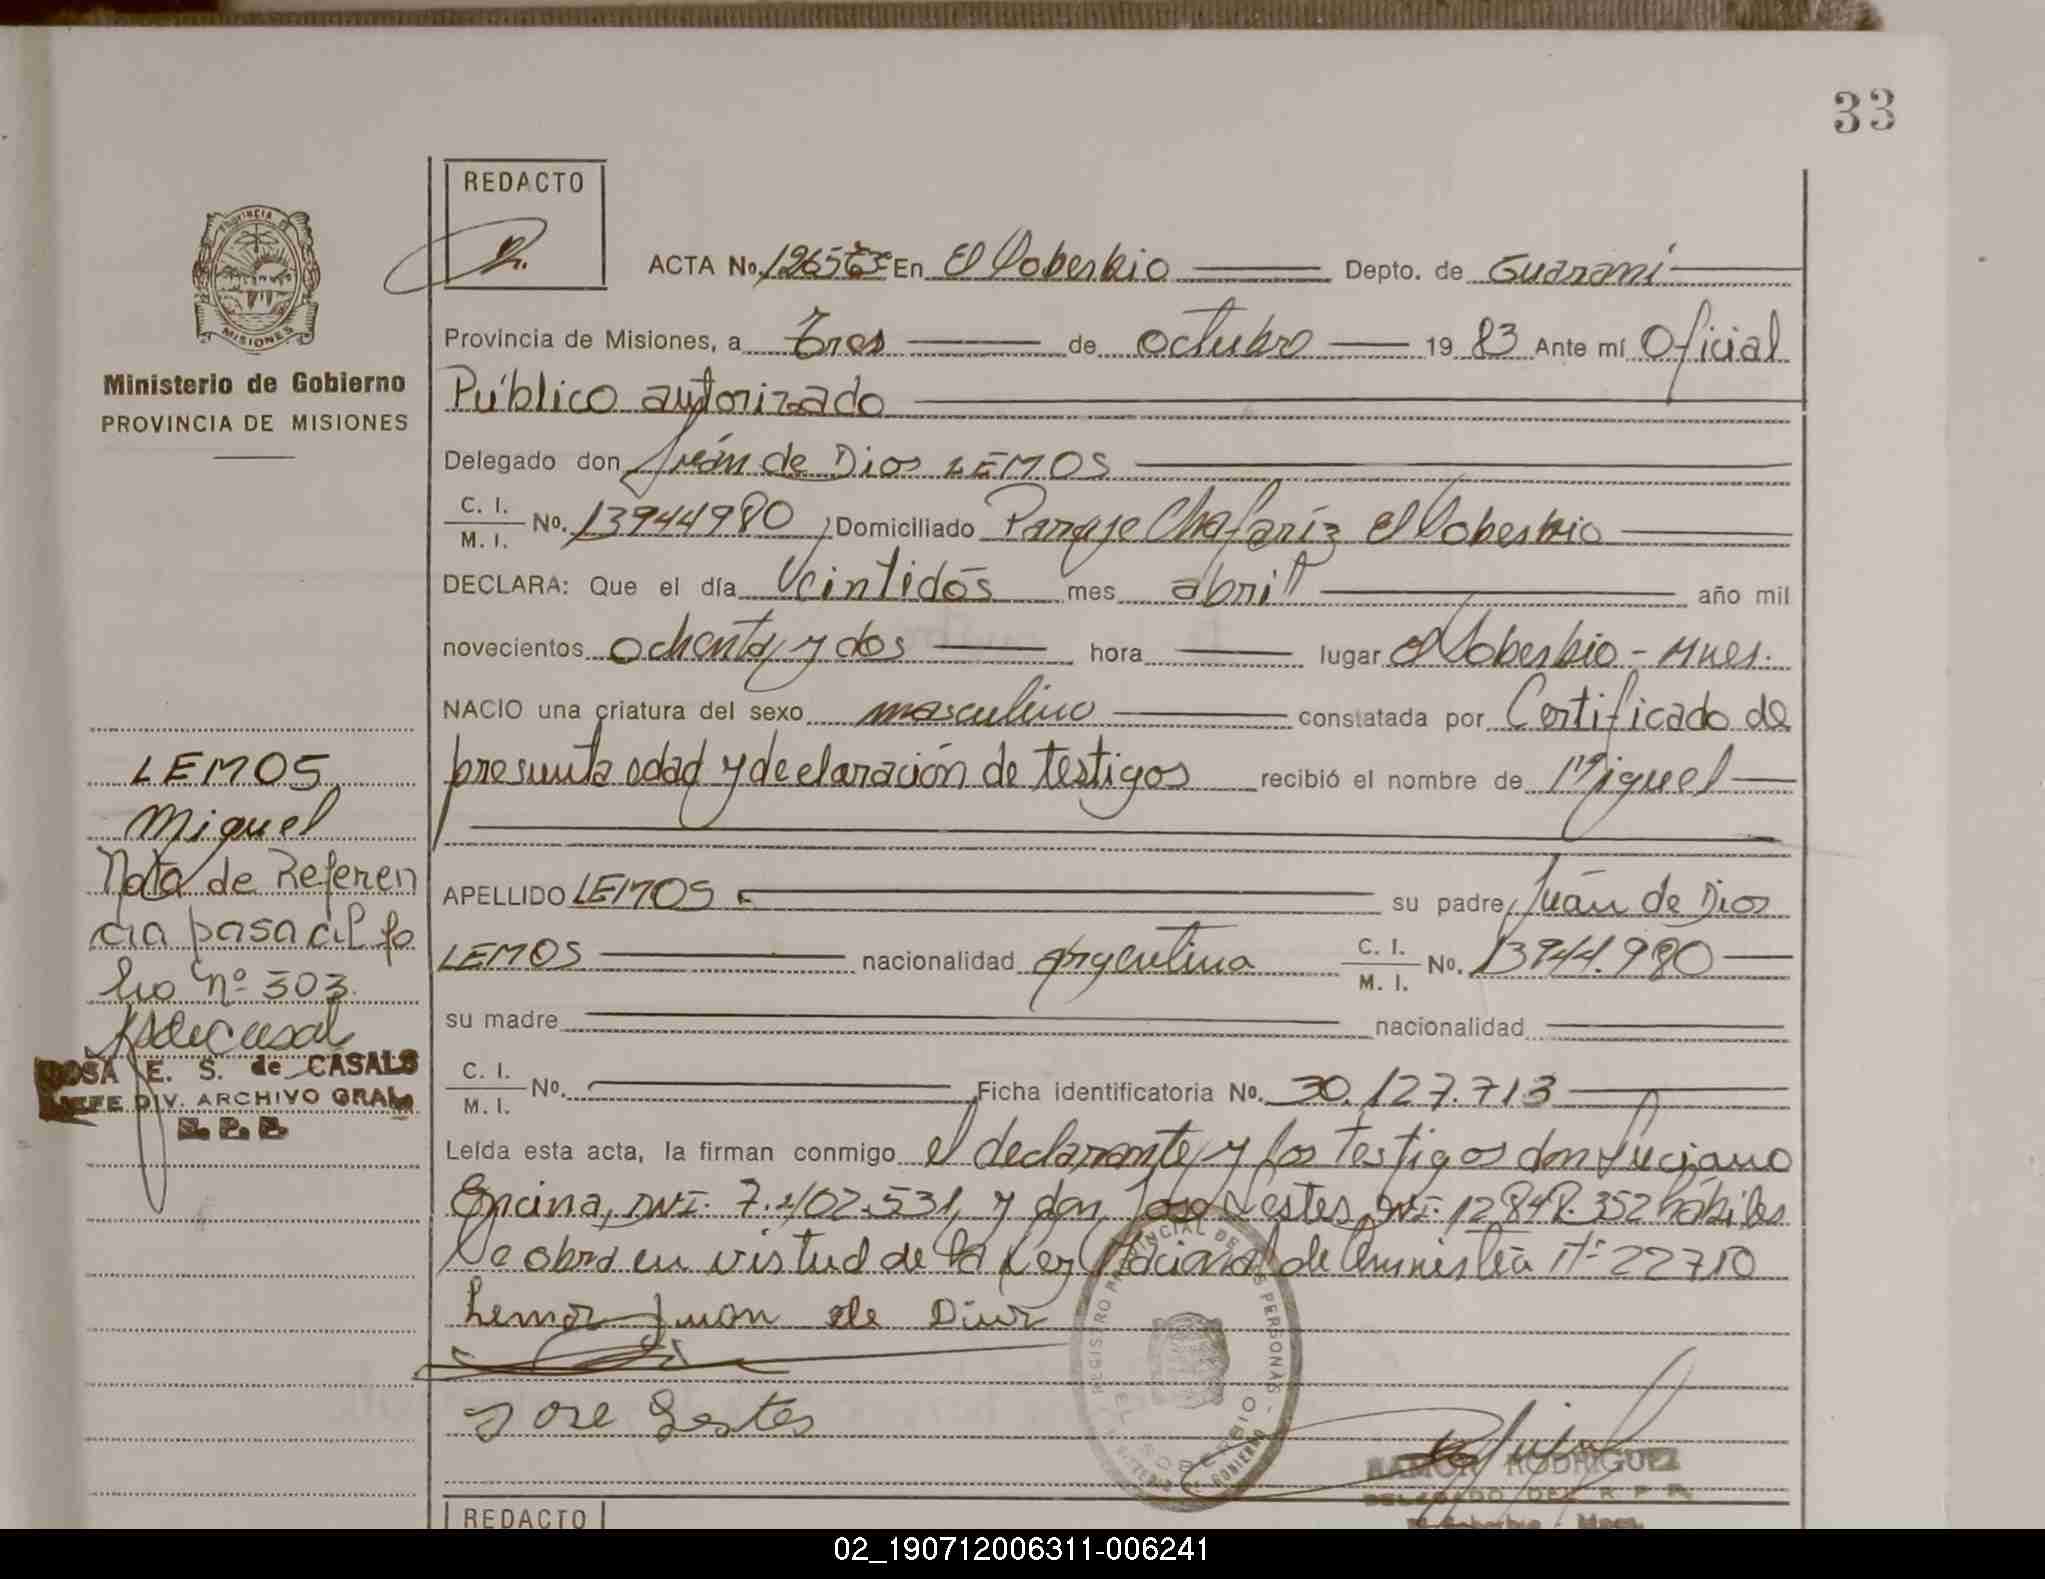 33
REDACTO
PROVINCIA
MISIONES
Ministerio de Gobierno
PROVINCIA DE MISIONES
ACTA No. En El Soberbio Depto. de Guaraní
Provincia de Misiones, a Tres de octubre 19 83 Ante mí Oficial
Público autorizado
Delegado don Juán de Dios LEMOS
C. I.
M. I. No. 13944980 Domiciliado Paraje Chafaríz El Soberbio
DECLARA: Que el día Veintidós mes abril año mil
novecientos ochenta y dos hora lugar El Soberbio - Mnes.
NACIO una criatura del sexo masculino constatada por Certificado de
presunta edad y declaración de testigos recibió el nombre de Miguel
APELLIDO LEMOS su padre Juán de Dios
LEMOS nacionalidad argentina C. I.
M. I. No. 13944.980
su madre nacionalidad
C. I.
M. I. No. Ficha identificatoria No. 30.127.713
Leída esta acta, la firman conmigo el declarante y los testigos don Luciano
Encina, DNI. 7.402.531, y don Jose Sestes, DNI. 12848.352 hábiles
Se obra en virtud de la Ley Nacional de Amnistía Nº 22710
Lemos Juan de Dios
Jose Sestes
REGISTRO PROVINCIAL DE LAS PERSONAS
EL SOBERBIO
MINISTERIO DE GOBIERNO
RAMON RODRIGUEZ
DELEGADO DEL R P P
El Soberbio - Mnes.
LEMOS
Miguel
Nota de Referen
cia pasa al fo
lio Nº 303
ROSA E. S. de CASALS
JEFE DIV. ARCHIVO GRAL.
R. P. P.
REDACTO
02_190712006311-006241